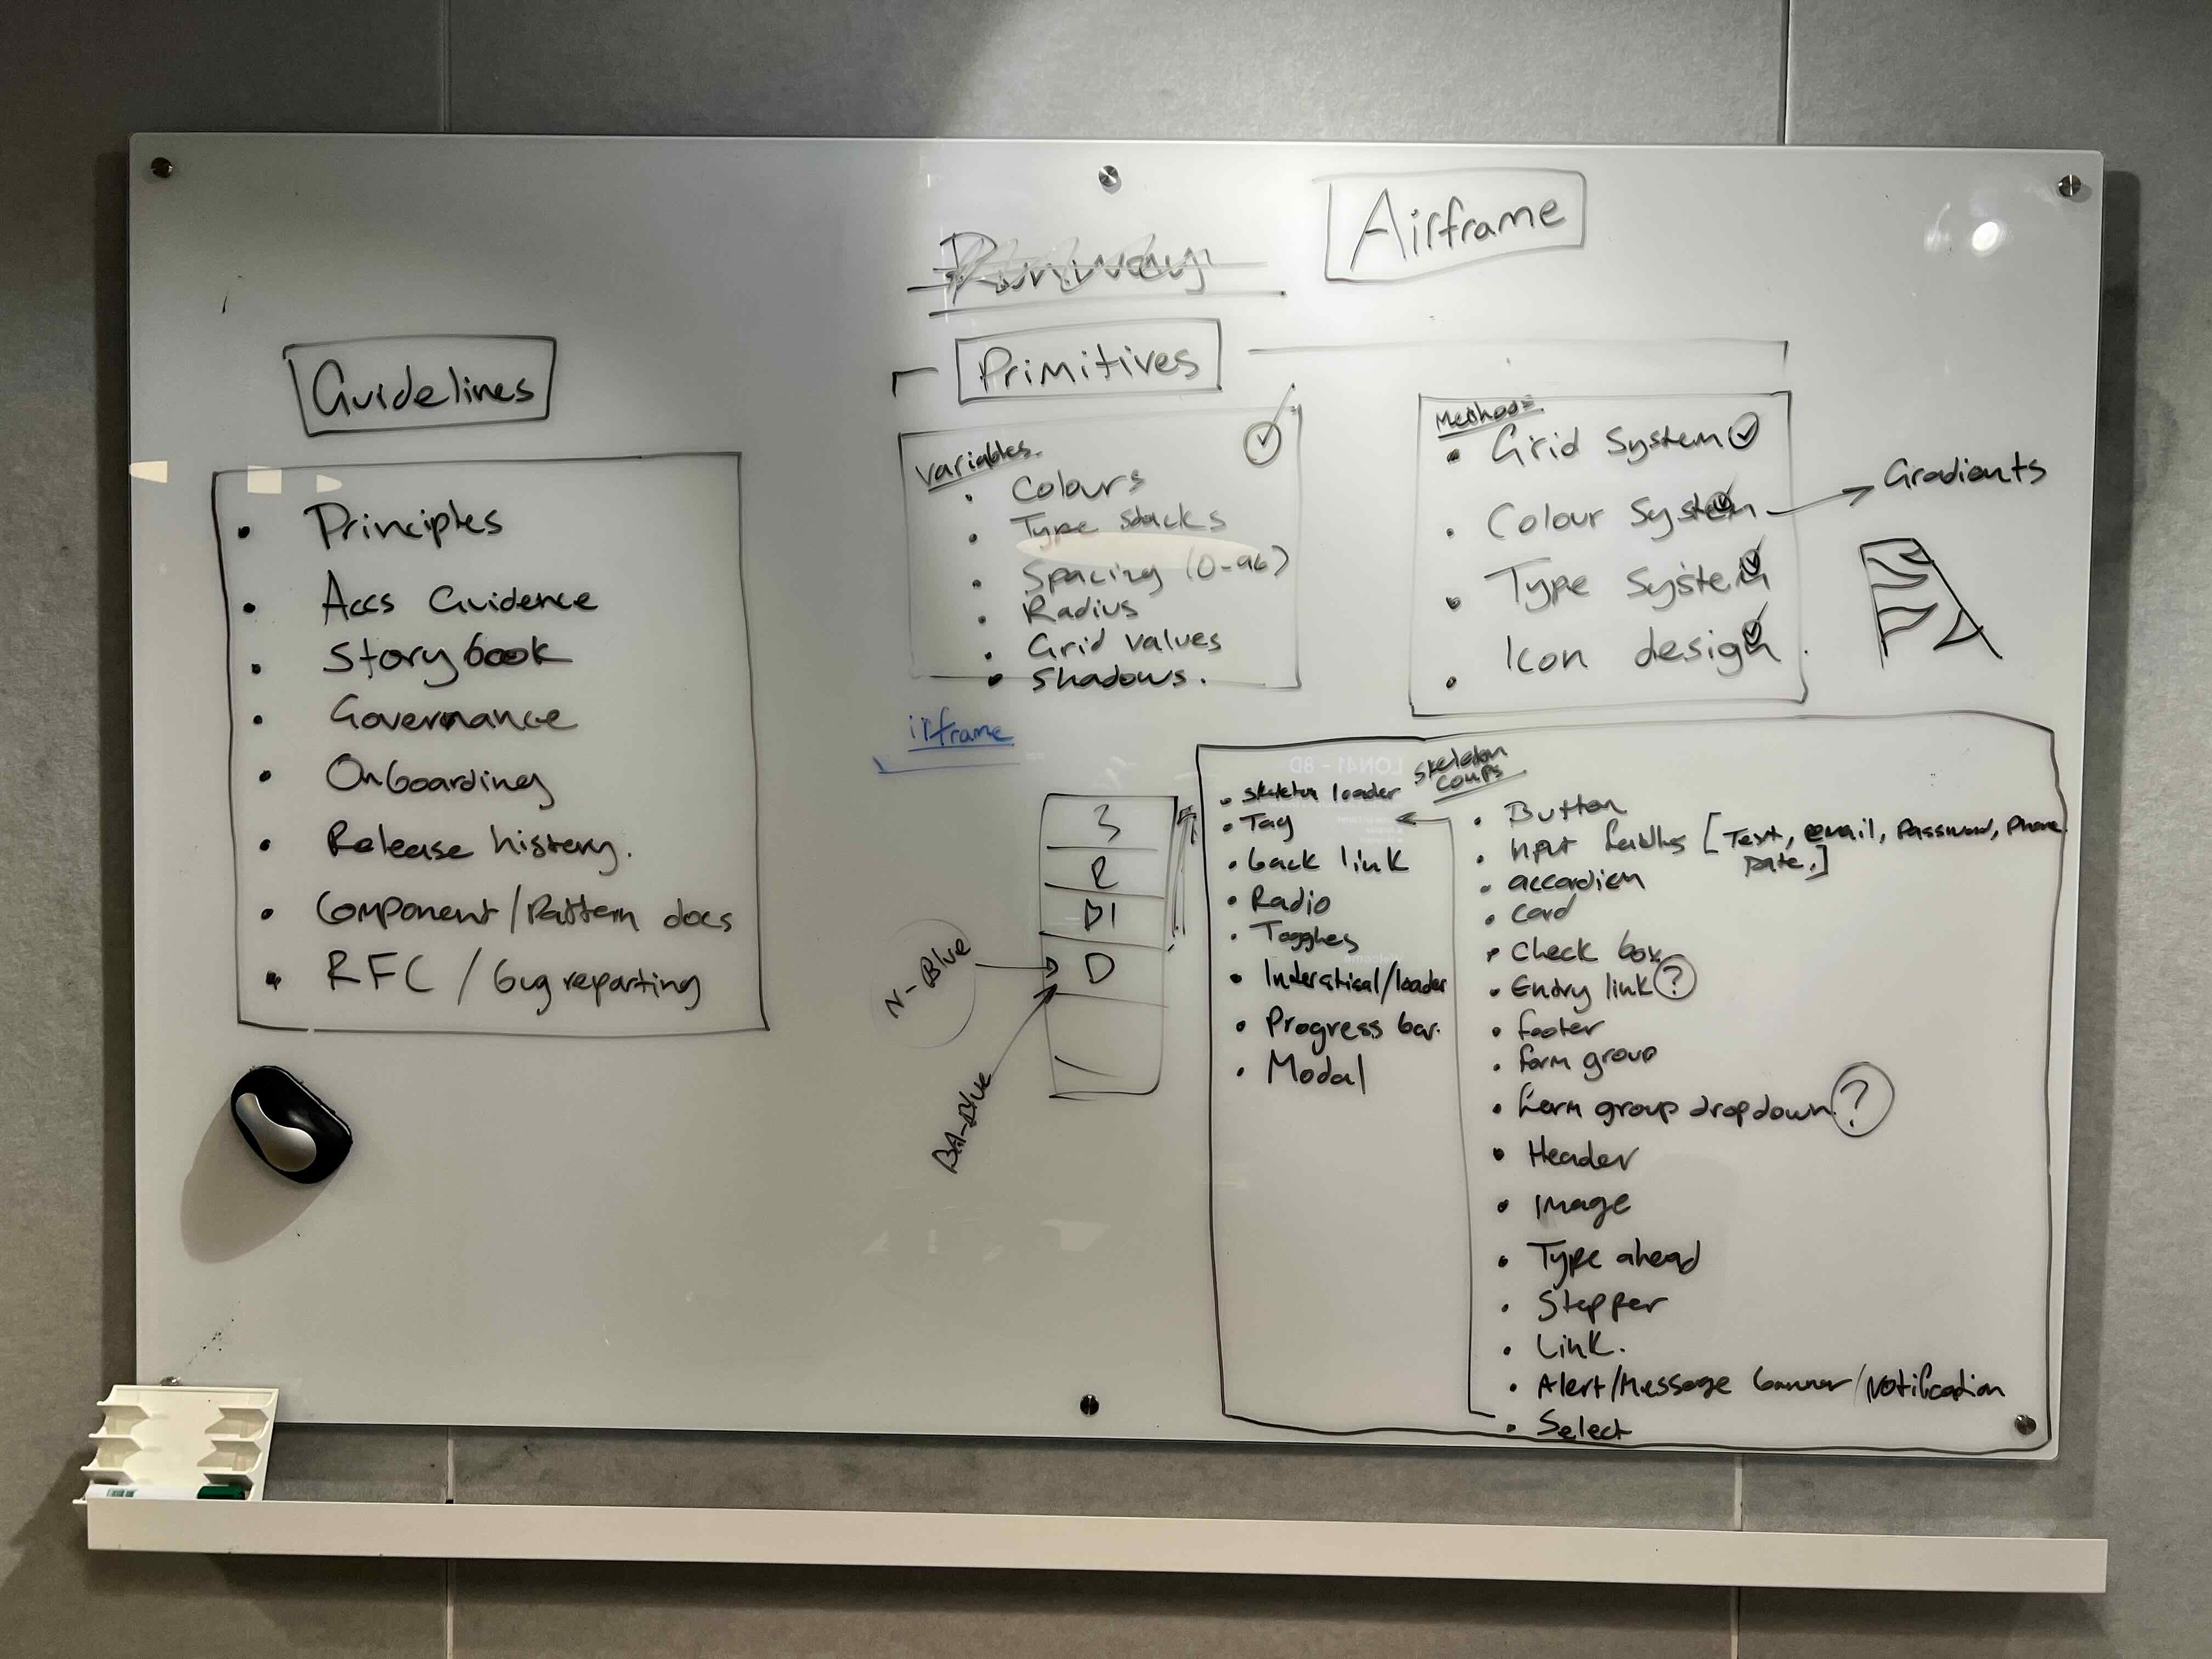 Airframe
Runway
Guidelines
• Principles
• Accs Guidence
• Storybook
• Governance
• Onboarding
• Release history.
• Component/Pattern docs
• RFC / bug reporting
Primitives
Variables.
• Colours
• Type stacks
• Spacing (0-96)
• Radius
• Grid values
• Shadows.
Methods
• Grid System
• Colour System
Gradients
• Type System
• Icon design
irframe
3
R
D1
D
N-Blue
BA-Blue
Skeleton
comps
• Skeleton loader
• Tag
• back link
• Radio
• Toggles
• Interstisal/loader
• Progress bar.
• Modal
• Button
• Input fields [Text, email, Password, Phone
Date.]
• accordien
• card
• Check box
• Entry link ?
• footer
• form group
• form group dropdown ?
• Header
• Image
• Type ahead
• Stepper
• Link.
• Alert/Message banner/Notification
• Select